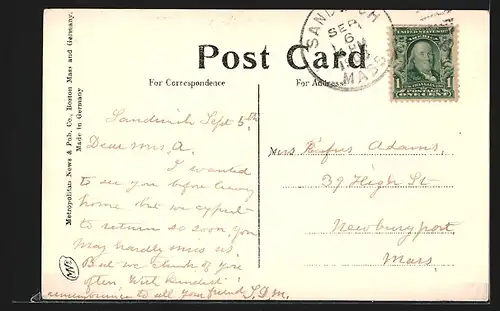 Post Card
For Correspondence
For Address
SANDWICH
SEP
6
MASS.
UNITED STATES OF AMERICA
POSTAGE
ONE CENT
Metropolitan News & Pub. Co., Boston Mass and Germany.
Made in Germany
Sandwich Sept 5th
Dear Mrs. A.
I wanted
to see you before leaving
home but we expect
to return so soon, you
may hardly miss us.
But we think of you
often. With kindest
remembrance to all your friend S.D.M.
Mrs Rufus Adams,
39 High St
Newburyport,
Mass.